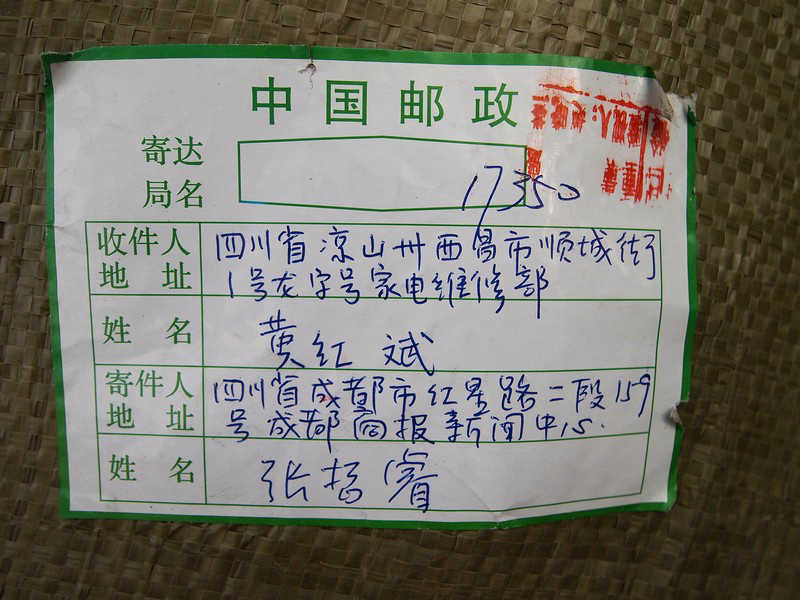 中国邮政
寄达
局名
17350
收件人
地址
四川省凉山州西昌市顺城街
1号龙字号家电维修部
姓名
黄红斌
寄件人
地址
四川省成都市红星路二段159
号成都商报新闻中心.
姓名
张哲睿